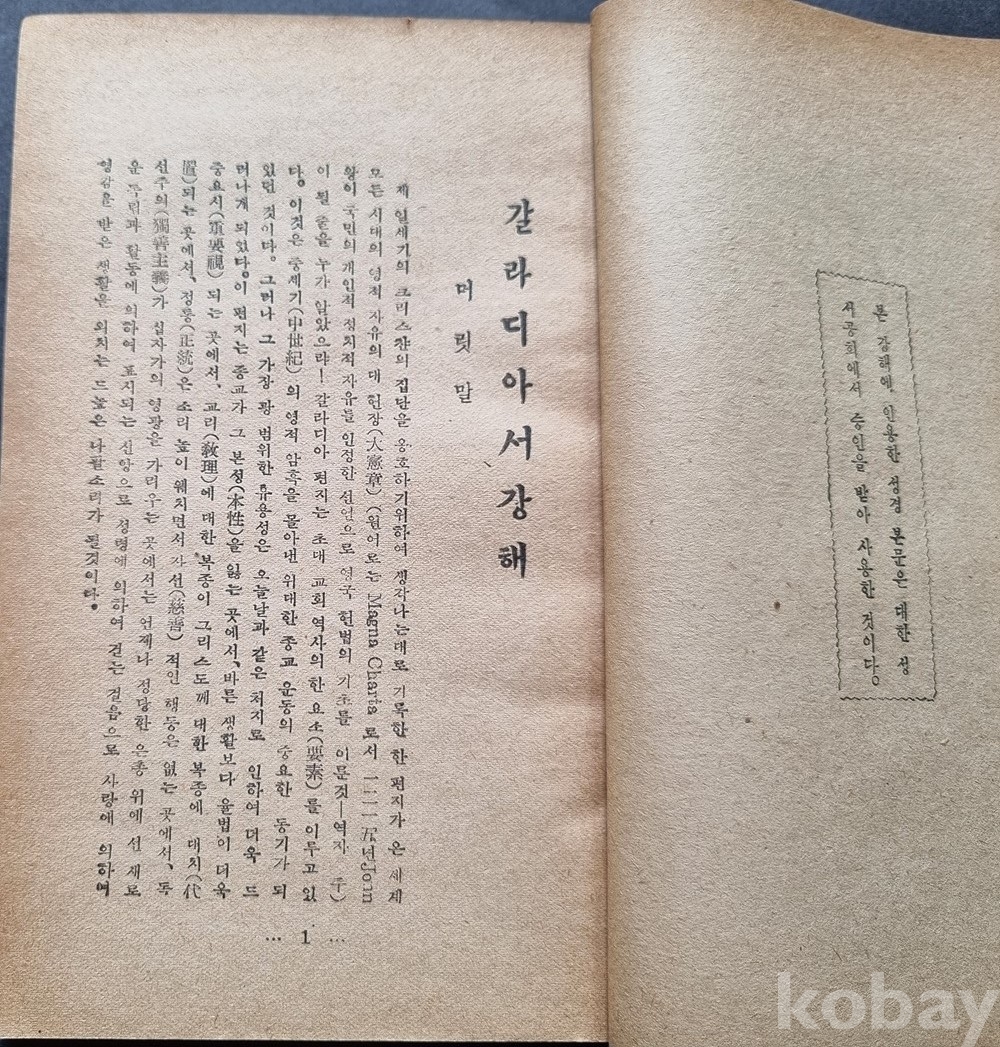 본 강해에 인용한 성경 본문은 대한 성
서공회에서 승인을 받아 사용한 것이다。
갈라디아서강해
머릿말
제 일세기의 크리스챤의 집단을 옹호하기위하여 생각나는대로 기록한 한 편지가 온 세계
모든 시대의 영적 자유의 대 헌장(大憲章) (원어로는 Magna Charta 로서 一二一五년John
왕이 국민의 개인적 정치적 자유를 인정한 선언으로 영국 헌법의 기초를 이룬것―역자 주)
이 될 줄을 누가 알았으랴! 갈라디아 편지는 초대 교회 역사의 한 요소(要素)를 이루고 있
다。이것은 중세기(中世紀)의 영적 암흑을 몰아낸 위대한 종교 운동의 중요한 동기가 되
있던 것이다。그러나 그 가장 광 범위한 유용성은 오늘날과 같은 처지로 인하여 더욱 드
러나게 되었다。이 편지는 종교가 그 본성(本性)을 잃는 곳에서、바른 생활보다 율법이 더욱
중요시(重要視) 되는 곳에서、교리(敎理)에 대한 복종이 그리스도께 대한 복종에 대치(代
置)되는 곳에서、정통(正統)은 소리 높이 웨치면서 자선(慈善)적인 행동은 없는 곳에서、독
선주의(獨善主義)가 십자가의 영광을 가리우는 곳에서는 언제나 정당한 은총 위에 선 새로
운 무리과 활동에 의하여 표시되는 신앙으로 성령에 의하여 걷는 걸음으로 사랑에 의하여
영감을 받은 생활을 외치는 드높은 나팔소리가 될것이다。
… 1 …
kobay